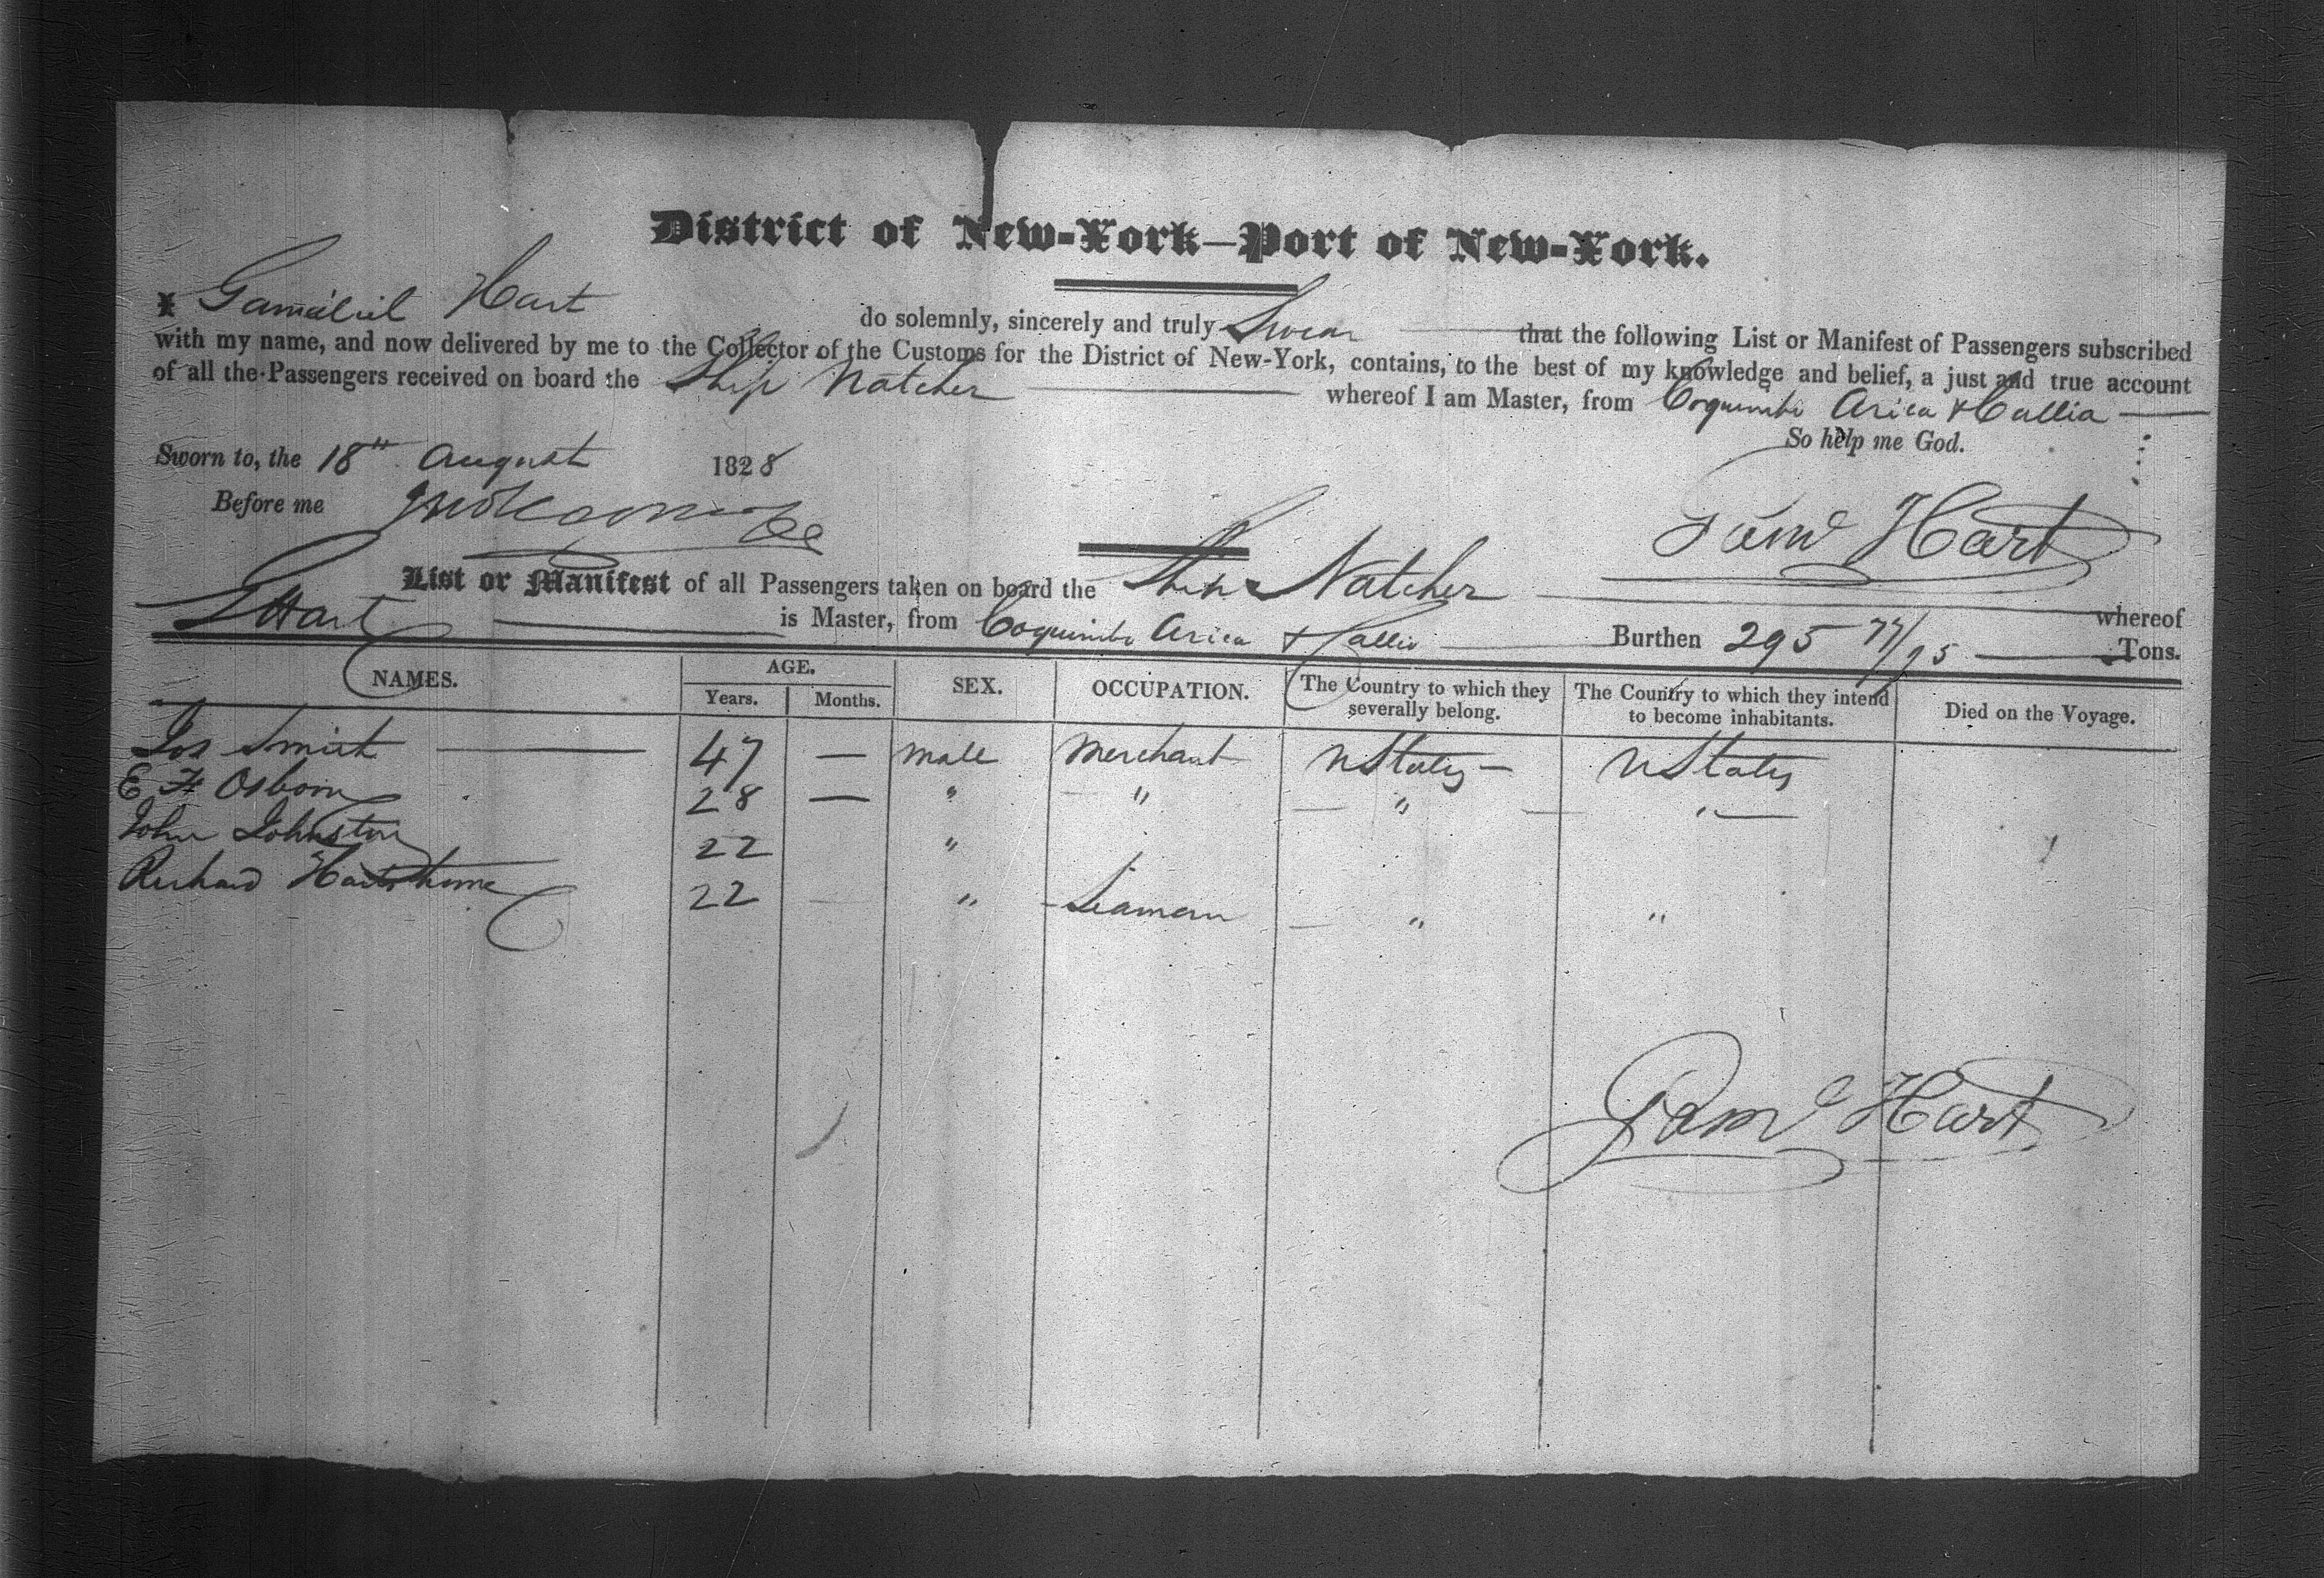 District of New-York—Port of New-York.
I Gamaliel Hart do solemnly, sincerely and truly Swear that the following List or Manifest of Passengers subscribed
with my name, and now delivered by me to the Collector of the Customs for the District of New-York, contains, to the best of my knowledge and belief, a just and true account
of all the Passengers received on board the Ship Natchez whereof I am Master, from Coquimbo Arica & Callia
So help me God.
Sworn to, the 18th August 1828
Before me
Gaml Hart
List or Manifest of all Passengers taken on board the Ship Natchez whereof
G Hart is Master, from Coquimbo Arica & Callio Burthen 295 77/95 Tons.
NAMES. AGE. SEX. OCCUPATION. The Country to which they severally belong. The Country to which they intend to become inhabitants. Died on the Voyage.
Years. Months.
Jos Smith 47 — male Merchant UStates — UStates
E H Osborn 28 — " " — " — "
John Johnston 22 "
Richard Hartshorne 22 — " Seaman — " "
Gaml Hart